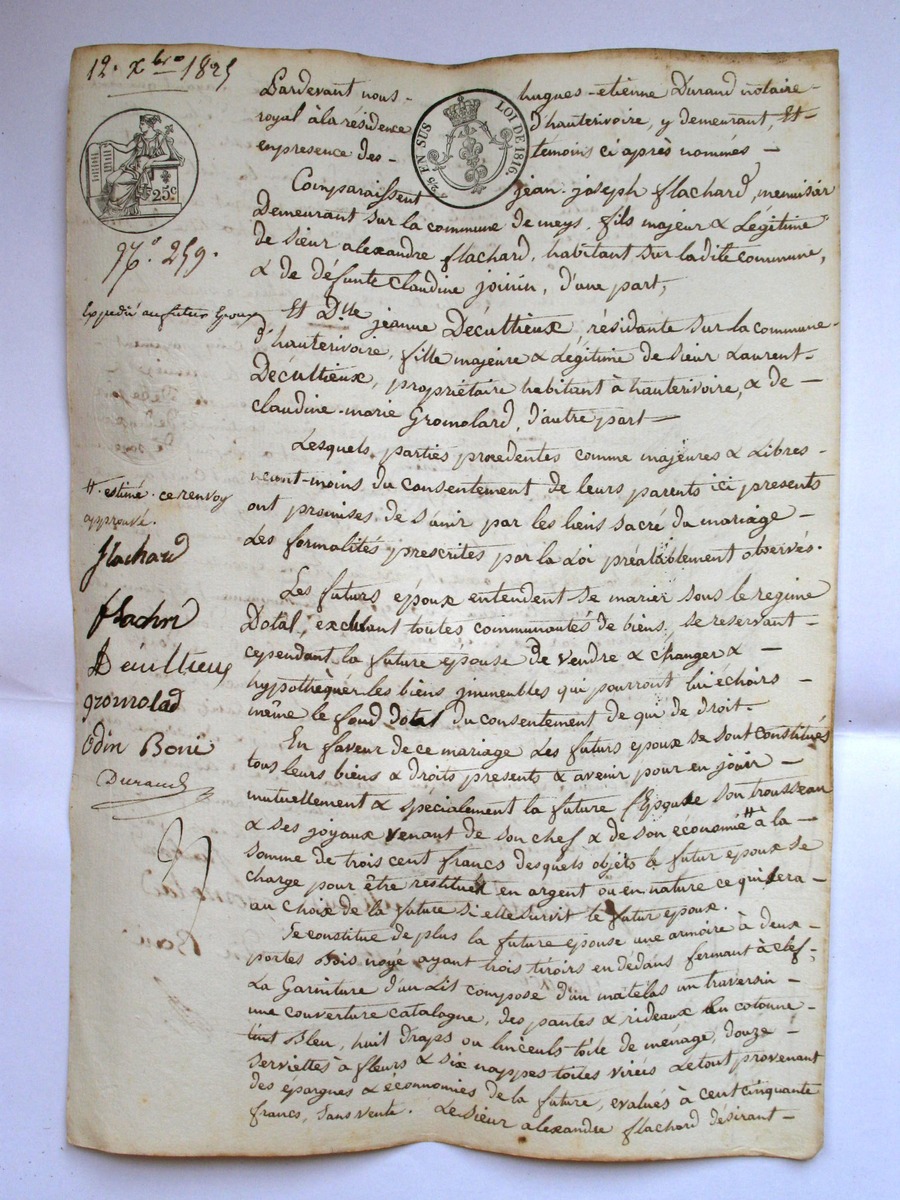 12. xbre 1825
25 EN SUS
LOI DE 1816.
25c
No. 259.
Expédié au futur Epoux
Pardevant nous - hugues-etienne Durand notaire -
royal à la résidence d'hauterivoire, y demeurant, Et -
en presence des - temoins ci après nommés -
Comparaissent jean-joseph flachard, menuisier
Demeurant sur la commune de meys, fils majeur & Légitime
de sieur alexandre flachard, habitant sur la dite commune,
& de défunte Claudine joinin, d'une part,
Et Dlle jeanne Décultieux, résidante sur la commune -
d'hauterivoire, fille majeure & Légitime de sieur Laurent -
Décultieux, propriétaire habitant à hauterivoire, & de -
claudine-marie Gromolard, d'autre part -
Lesquels parties procedentes comme majeures & Libres -
neant-moins du consentement de leurs parents ici presents
ont promises de s'unir par les liens sacré du mariage -
Les formalités prescrites par la Loi préalablement observés.
Les futurs époux entendent se marier sous le regime
Dotal, excluant toutes communautés de biens, se reservant -
cependant la future épouse de vendre & changer & -
hypothèquer les biens immeubles qui pourront lui échoirs -
même le fond Dotal du consentement de qui de droit -
En faveur de ce mariage Les futurs époux se sont constitués
tous leurs biens & droits presents & avenir pour en jouir -
mutuellement & spécialement la future Epouse son trousseau
& ses joyaux venant de son chef & de son économie # à la -
somme de trois cent francs desquels objets le futur époux se
charge pour être restitués en argent ou en nature ce qui sera -
au choix de la future si elle survit le futur époux.
Se constitue de plus la future épouse une armoire à deux -
portes Bois noyé ayant trois tiroirs en dedans fermant à clef,
La Garniture d'un Lit composé d'un matelas un traversin -
une couverture catalogne, des pantes & rideaux en cotonne -
tint Bleu, huit Draps ou linceuls toile de ménage, douze -
serviettes à fleurs & six nappes toiles virées Le tout provenant
des epargnes & économies de la future, evalués à cent cinquante
francs, sans vente. Le sieur alexandre flachard désirant -
#. estimé. ce renvoy
approuvé.
flachard
flachard
Decultieux
gromolad
Odin Boni
Durand